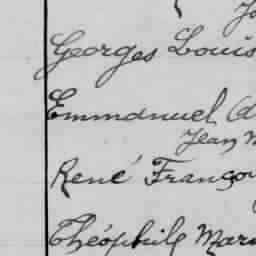 Georges Louis
Emmanuel
Jean
René François
Théophile Marie